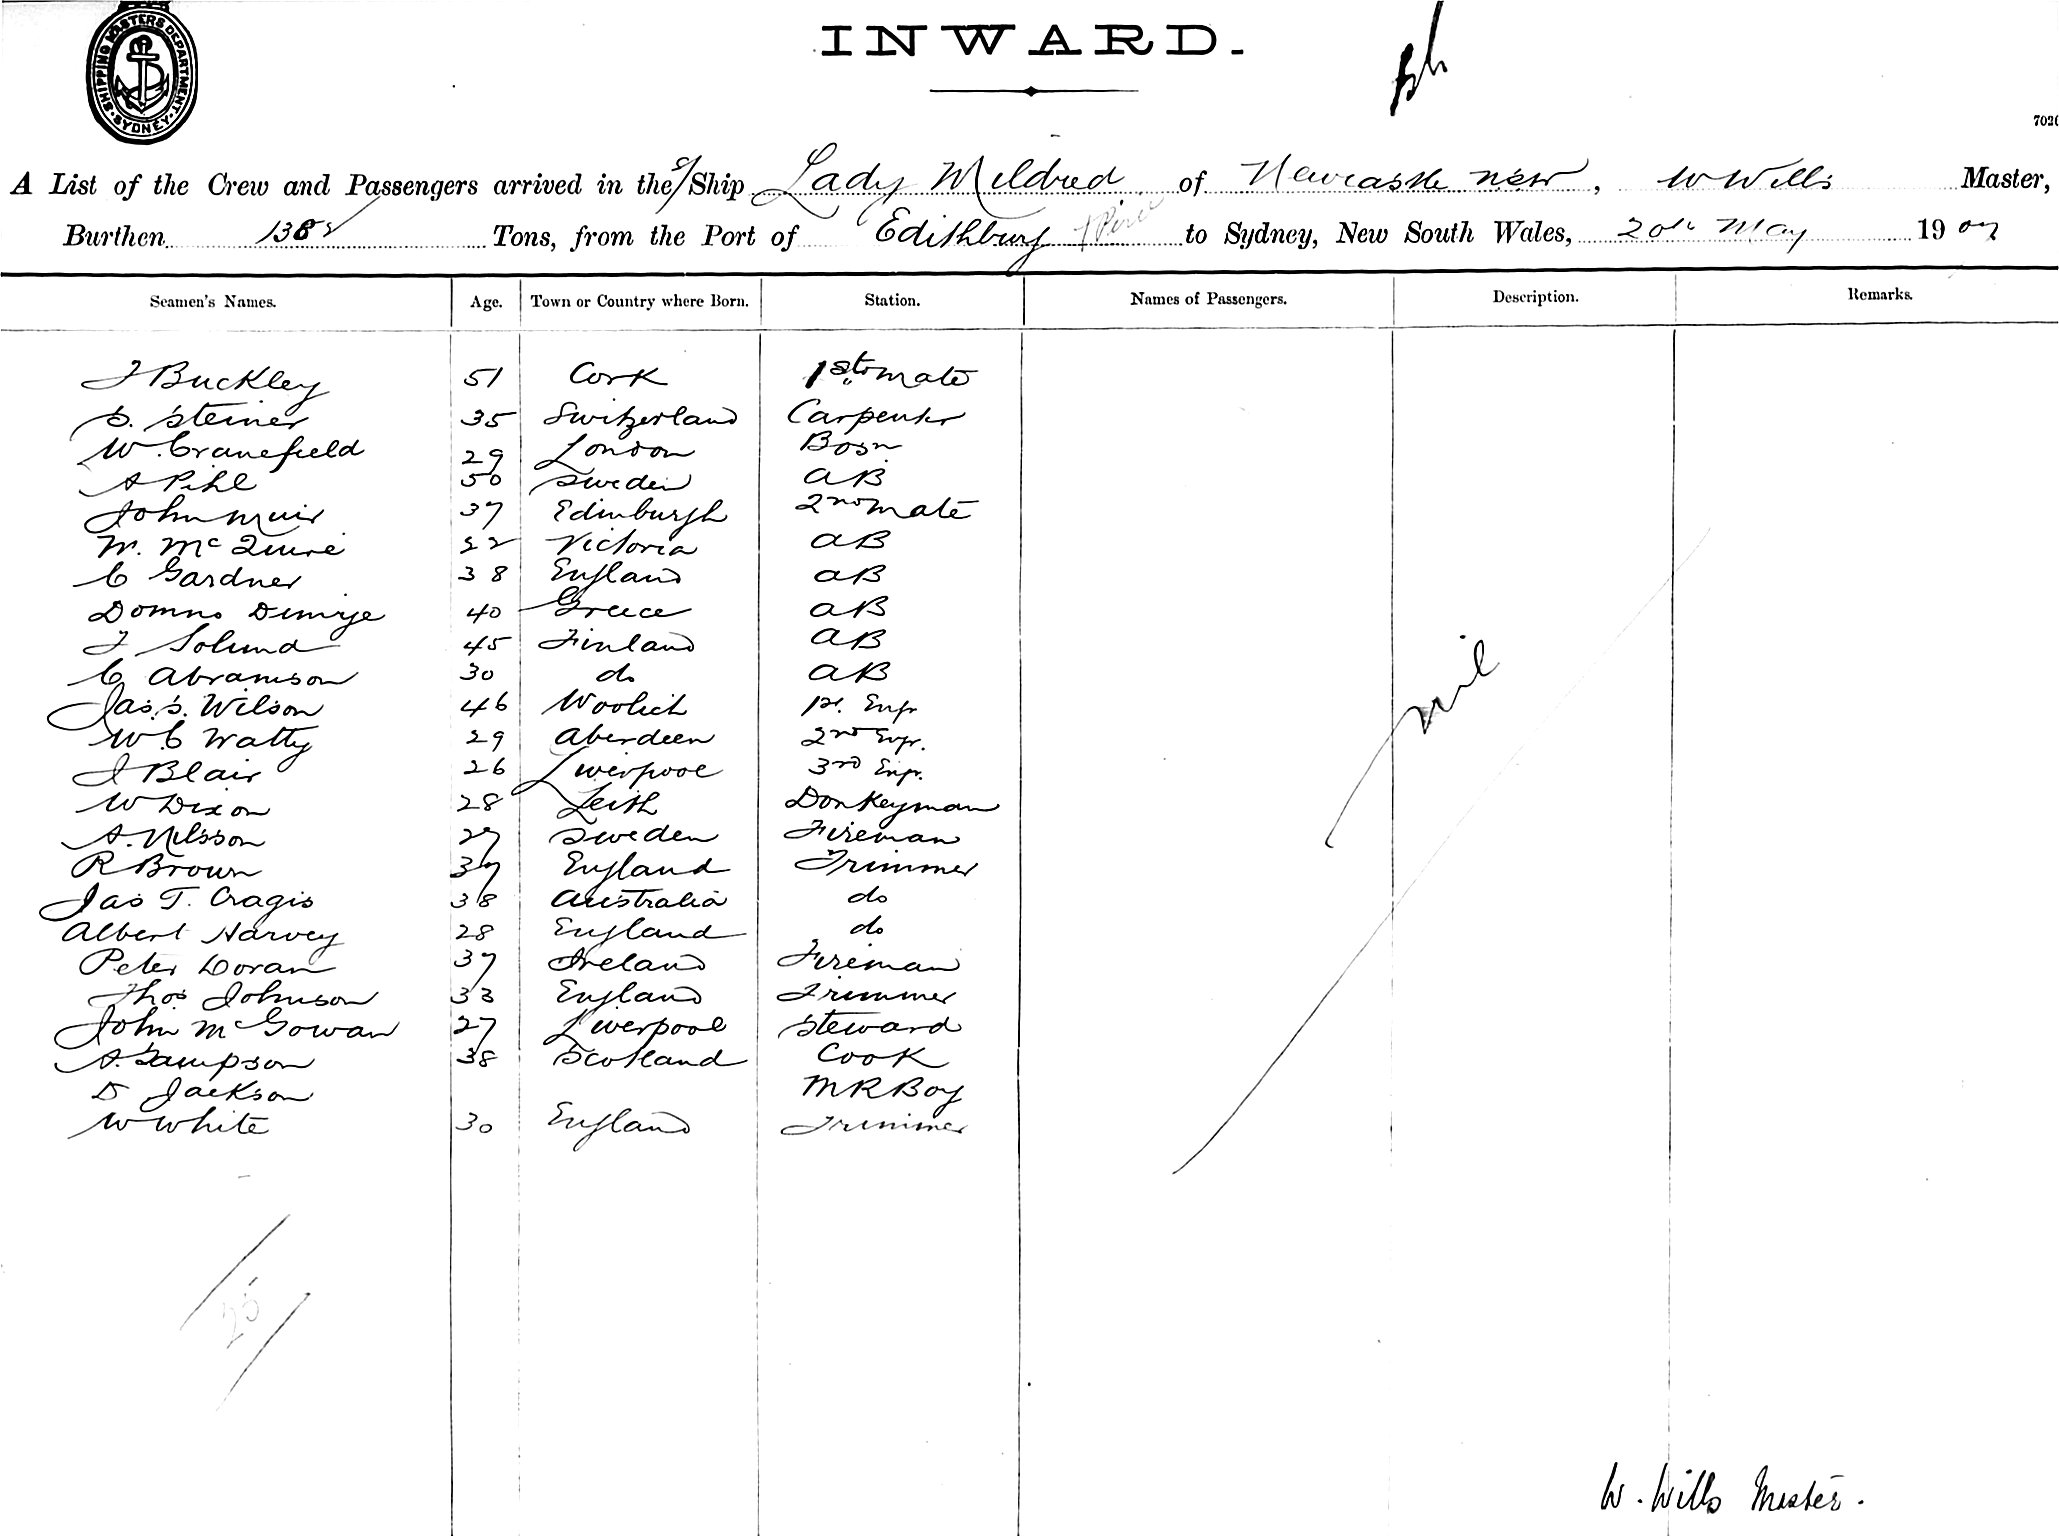 SHIPPING MASTERS DEPARTMENT SYDNEY
INWARD.
7020
A List of the Crew and Passengers arrived in the s/Ship Lady Mildred of Newcastle NSW, W Wills Master,
Burthen Tons, from the Port of Edithburg to Sydney, New South Wales, 20th May 1907
Seamen's Names. Age. Town or Country where Born. Station. Names of Passengers. Description. Remarks.
J Buckley 51 Cork 1st Mate
S. Steiner 35 Switzerland Carpenter
W. Cranefield 29 London Bosn
A Pihl 50 Sweden AB
John Muir 37 Edinburgh 2nd Mate
W. McQuire 22 Victoria AB
C Gardner 38 England AB
40 Greece AB
45 Finland AB
C Abramson 30 do AB
Jas. S. Wilson 46 Woolich 1st. Engr
W C Watty 29 Aberdeen 2nd Engr.
J Blair 26 Liverpool 3rd Engr.
W Dixon 28 Leith Donkeyman
A. Nilsson 27 Sweden Fireman
R Brown 37 England Trimmer
Jas T. Cragis 38 Australia do
Albert Harvey 28 England do
Peter Doran 37 Ireland Fireman
Thos Johnson 33 England Trimmer
John McGowan 27 Liverpool Steward
A. Sampson 38 Scotland Cook
D Jackson MR Boy
W White 30 England Trimmer
nil
25
W. Wills Master.